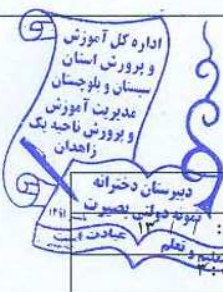 اداره کل آموزش
و پرورش استان
سیستان و بلوچستان
مدیریت آموزش
و پرورش ناحیه یک
زاهدان
دبیرستان دخترانه
نمونه دولتی بصیرت
۱۳ / /
تعلیم و تعلم عبادت است